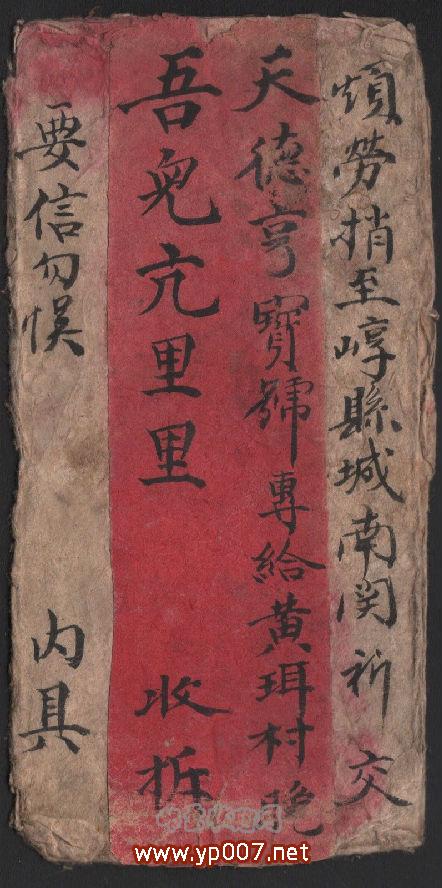 煩勞捎至崞縣城南関祈交
天德亨寳號專給黄珥村晚
吾兒亢里里 收拆
要信勿悮 内具
www.yp007.net